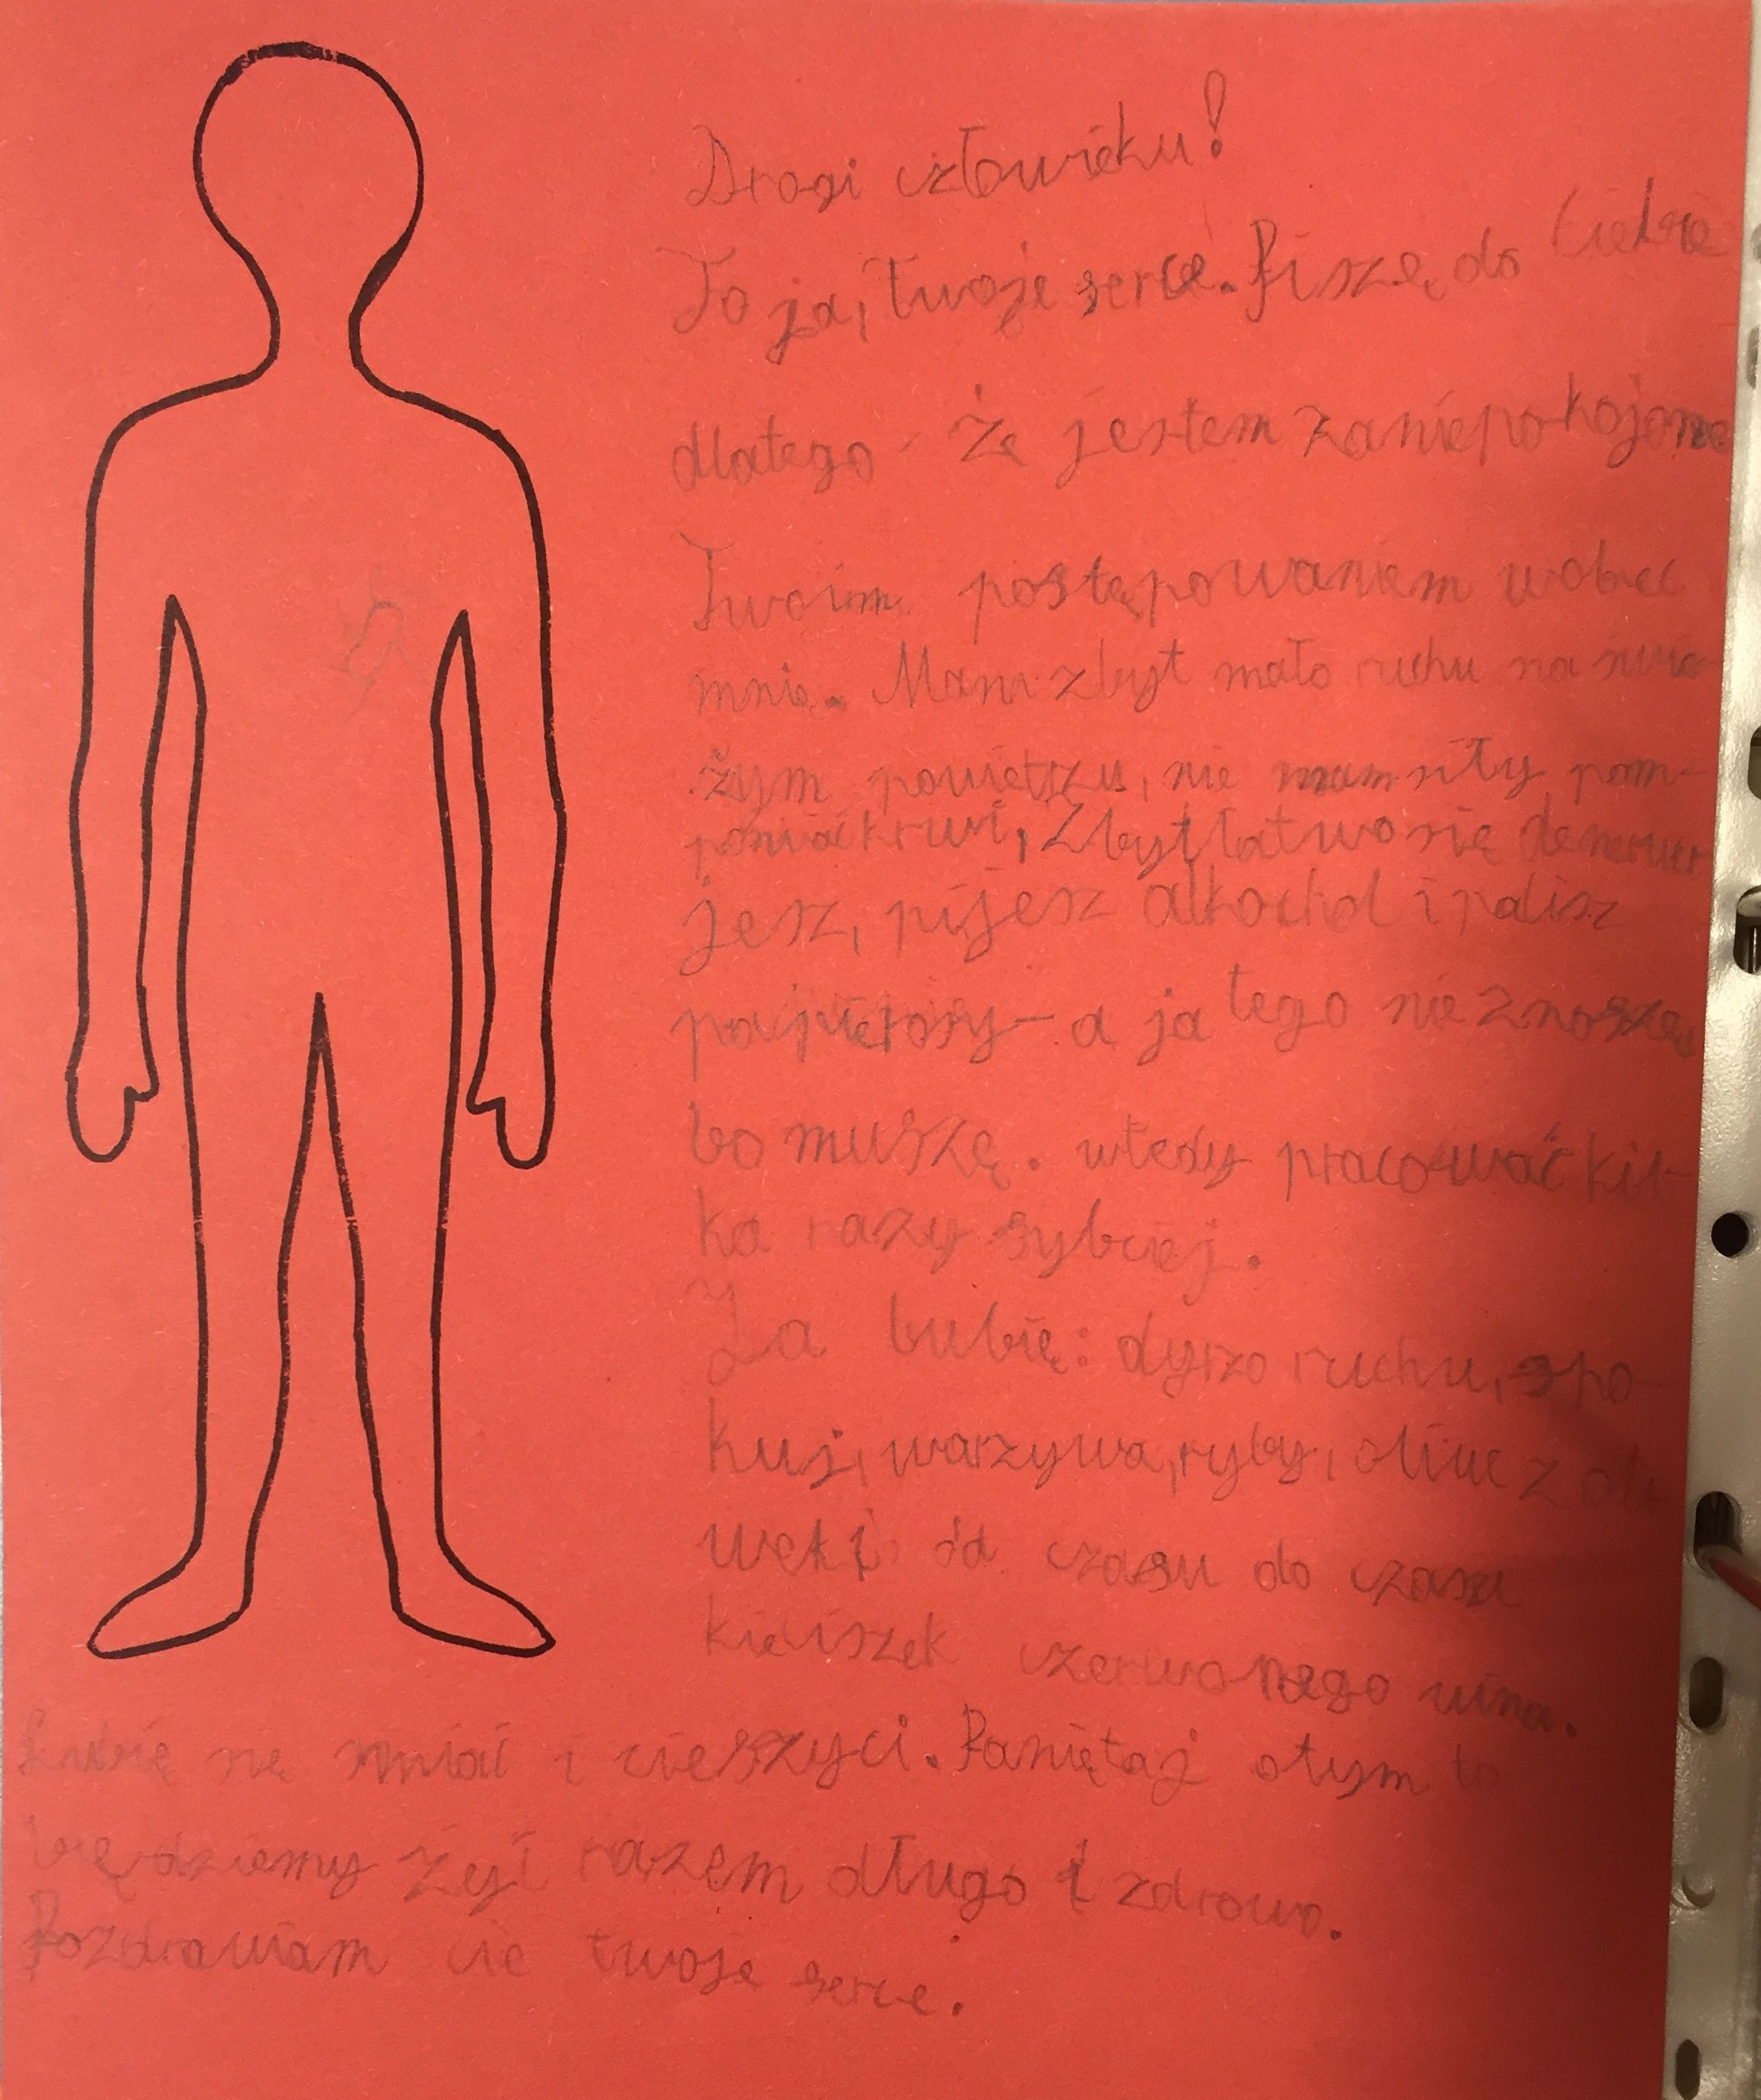 Drogi człowieku!
To ja, Twoje serce. Piszę do Ciebie
dlatego że jestem zaniepokojone
Twoim postępowaniem wobec
mnie. Mam zbyt mało ruchu na świe-
żym powietrzu, nie mam siły pom-
pować krwi, Zbyt łatwo się denerwu
jesz, pijesz alkochol i palisz
papierosy - a ja tego nie znoszę,
bo muszę. wtedy pracować kil-
ka razy sybciej.
Ja lubię: dyrzo ruchu, spo-
kuj, warzywa, ryby, oliwe z oli
wek i od czasu do czasu
kieliszek czerwonego wina.
Lubię się śmiać i cieszyci. Paniętaj otym to
będziemy żyć razem długo i zdrowo.
Pozdrawiam cie twoje serce.